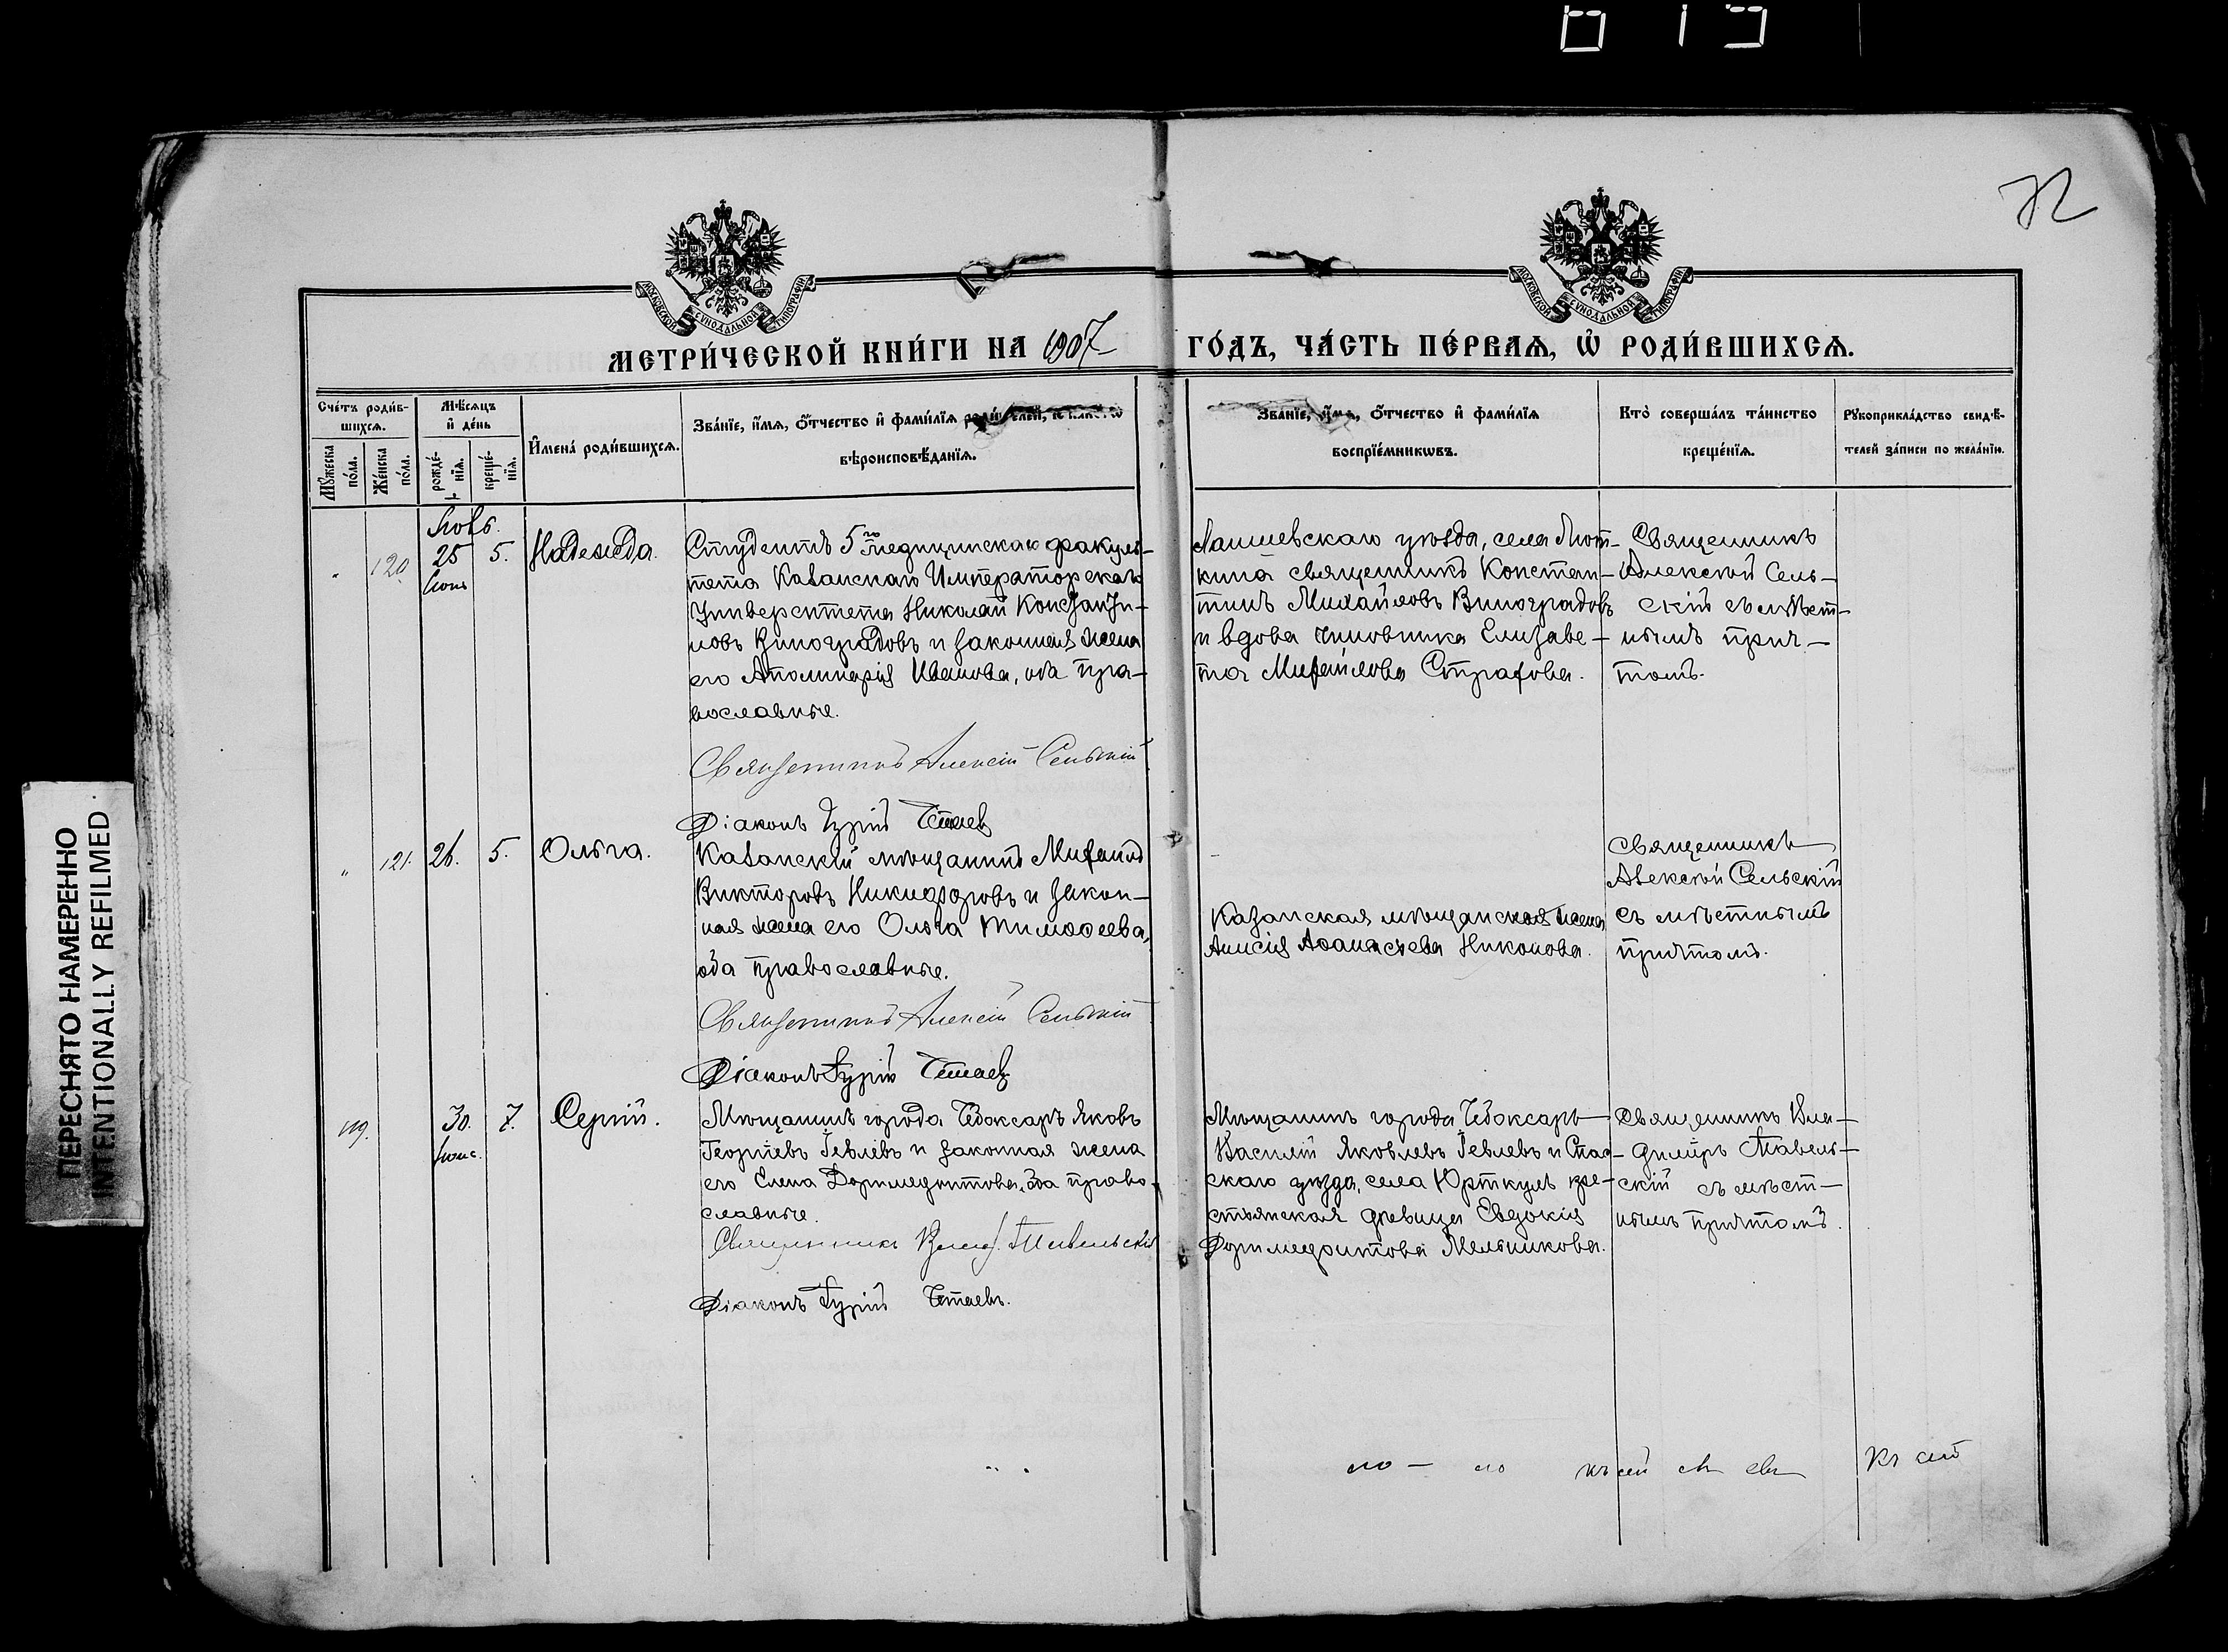 72
МЕТРИ́ЧЕСКОЙ КНИ́ГИ НА 1907
ГО́ДЪ, ЧА́СТЬ ПЕ́РВАѦ, Ѡ҆ РОДИ́ВШИХСѦ.
Сче́тъ роди́в-
шихсѧ.
Мꙋ́жеска
по́ла.
Же́нска
по́ла.
Мѣ́сѧцъ
и҆ де́нь
рожде́-
нїѧ.
креще́-
нїѧ.
И҆мена̀ роди́вшихсѧ.
Зва́нїе, и҆́мѧ, ѻ҆́тчество и҆ фами́лїѧ
вѣроисповѣ́данїѧ.
Зва́нїе, и҆́мѧ, ѻ҆́тчество и҆ фами́лїѧ
воспрїе́мникѡвъ.
Кто̀ соверша́лъ та́инство
креще́нїѧ.
Рꙋкоприкла́дство свидѣ́-
телей за́писи по жела́нїю.
120
25
5.
Надежда.
Студентъ 5го медицинскаго факуль-
тета Казанскаго Императорскаго
Университета Николай Константи-
новъ Виноградовъ и законная жена
его Аполинарія Иванова, оба пра-
вославные.
Священникъ Алексій Сельскій
Діаконъ Гурій
Лаишевскаго уѣзда, села
кина священникъ Констан-
тинъ Михайловъ Виноградовъ
и вдова чиновника Елизаве-
та Михайлова Страхова.
Священникъ
Алексѣй Сель-
скій съ мѣст-
нымъ прич-
томъ.
121.
26.
5.
Ольга.
Казанскій мѣщанинъ Михаилъ
Викторовъ Никифоровъ и закон-
ная жена его Ольга Тимоѳеева,
оба православные.
Священникъ Алексій Сельскій
Діаконъ Гурій
Казанская мѣщанская жена
Анисія Аѳанасьева Никонова.
Священникъ
Алексѣй Сельскій
съ мѣстнымъ
причтомъ.
119.
30.
7.
Сергій.
Мѣщанинъ города Чебоксаръ Яковъ
Георгіевъ Гевлевъ и законная жена
его Елена Доримедонтова, оба право-
славные.
Священникъ Влад.
Діаконъ Гурій
Мѣщанинъ города Чебоксаръ
Василій Яковлевъ Гевлевъ и Спас-
скаго уѣзда, села Юрткуль кре-
стьянская дѣвица Евдокія
Доримедонтова Мельникова.
Священникъ Вла-
диміръ
скій съ мѣст-
нымъ причтомъ.
ПЕРЕСНЯТО НАМЕРЕННО
INTENTIONALLY REFILMED